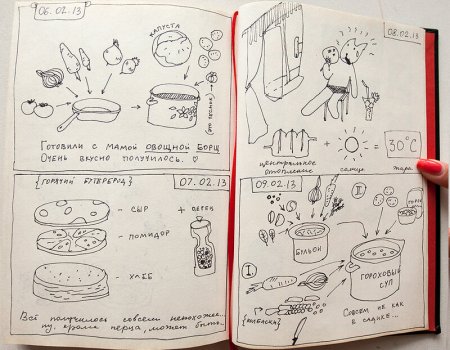 06.02.13
КАПУСТА
(это фасоль)
Готовили с мамой овощной борщ
Очень вкусно получилось. ♡
{Горячий бутерброд}
07.02.13
- СЫР
+ ПЕРЕЦ
- ПОМИДОР
- ХЛЕБ
Всё получилось совсем непохоже...
ну, кроме перца, может быть.
08.02.13
центральное
отопление
+
солнце
=
30°C
жара
09.02.13
II.
БУЛЬОН
I.
ГОРОХОВЫЙ
СУП
{КОЛБАСКИ}
Совсем не как
в садике...